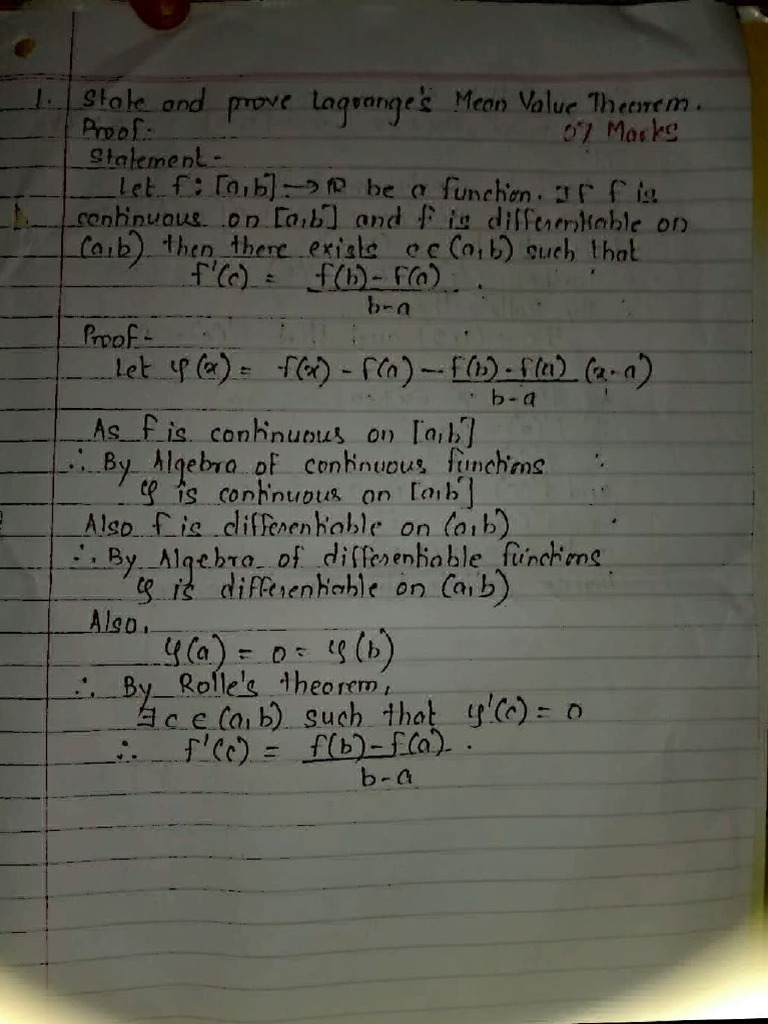 1. State and prove Lagrange's Mean Value Theorem.
Proof:
07 Marks
Statement -
Let f : [a,b] → R be a function. If f is
continuous on [a,b] and f is differentiable on
(a,b) then there exists c ∈ (a,b) such that
f'(c) = f(b) - f(a) .
b-a
Proof -
Let φ(x) = f(x) - f(a) - f(b) - f(a) (x-a)
b-a
As f is continuous on [a,b]
∴ By Algebra of continuous functions
φ is continuous on [a,b]
Also f is differentiable on (a,b)
∴ By Algebra of differentiable functions
φ is differentiable on (a,b)
Also,
φ(a) = 0 = φ(b)
∴ By Rolle's theorem,
∃ c ∈ (a,b) such that φ'(c) = 0
∴ f'(c) = f(b) - f(a) .
b-a